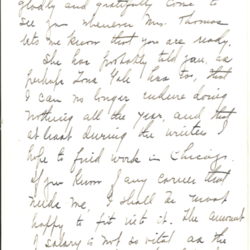 gladly and gratefully come to
see you whenever Mrs. Thomas
lets me know that you are ready.
She has probably told you, as
perhaps Zona Gale has too, that
I can no longer endure doing
nothing all the year, and that
at least during the winter I
hope to find work in Chicago.
If you know of any corner that
needs me, I shall be most
happy to fit into it. The amount
of salary is not so vital as the